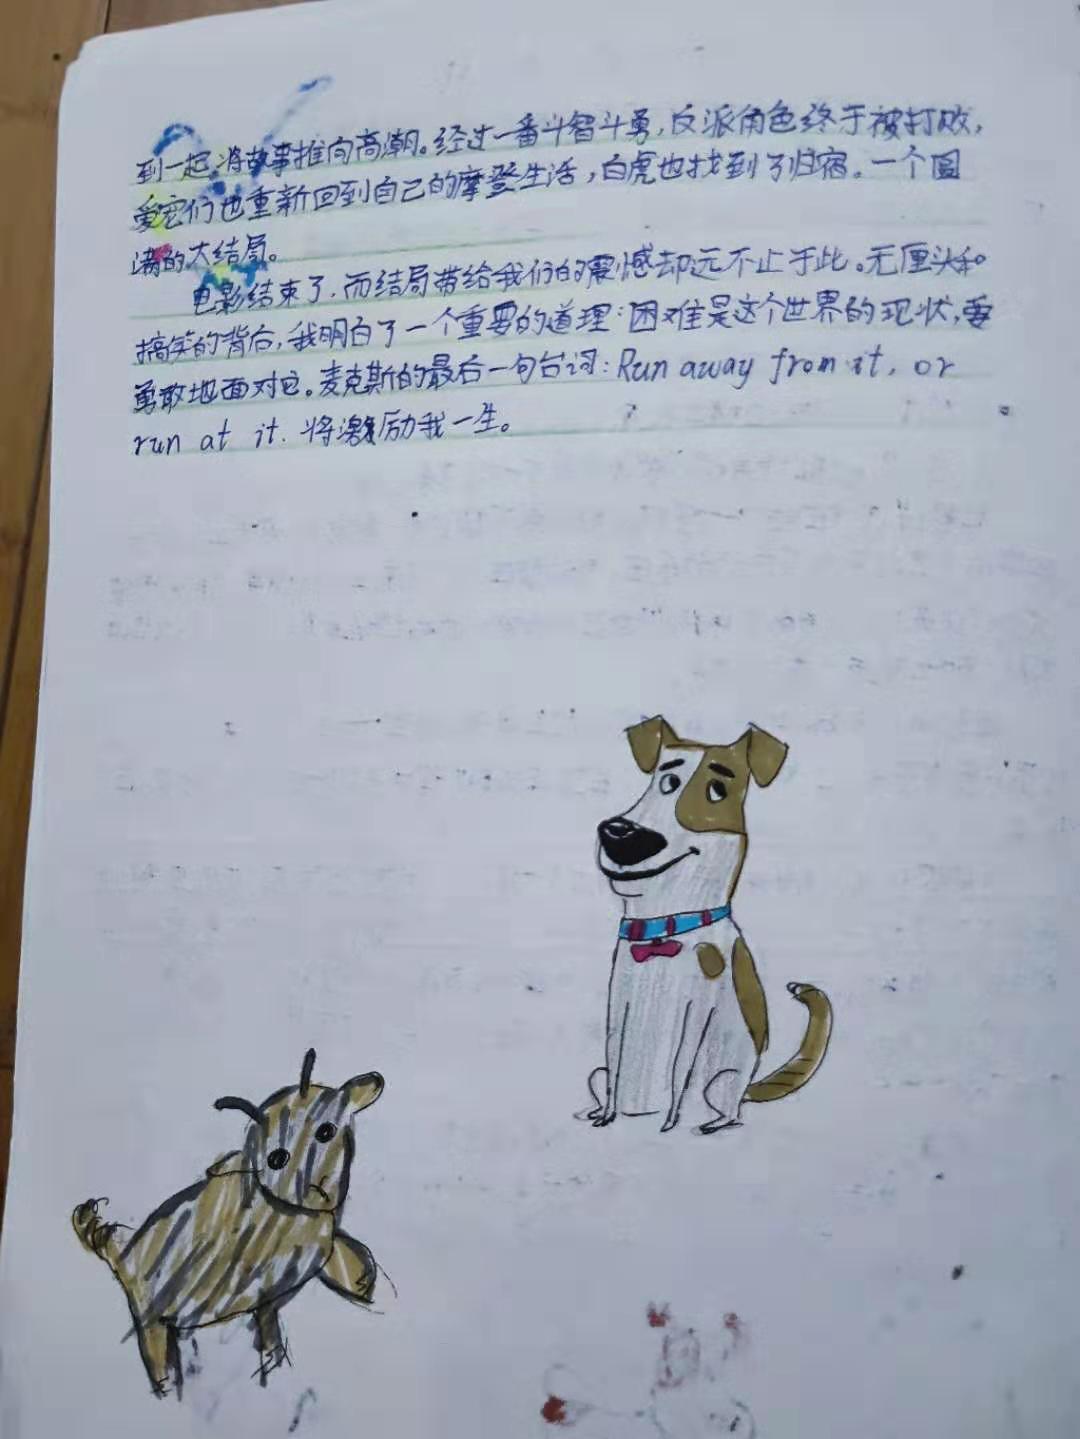 到一起,将故事推向高潮。经过一番斗智斗勇,反派角色终于被打败,
爱宠们也重新回到自己的摩登生活,白虎也找到了归宿。一个圆
满的大结局。
电影结束了,而结局带给我们的震憾却远不止于此。无厘头和
搞笑的背后,我明白了一个重要的道理:困难是这个世界的现状,要
勇敢地面对它。麦克斯的最后一句台词:Run away from it, or
run at it. 将激励我一生。